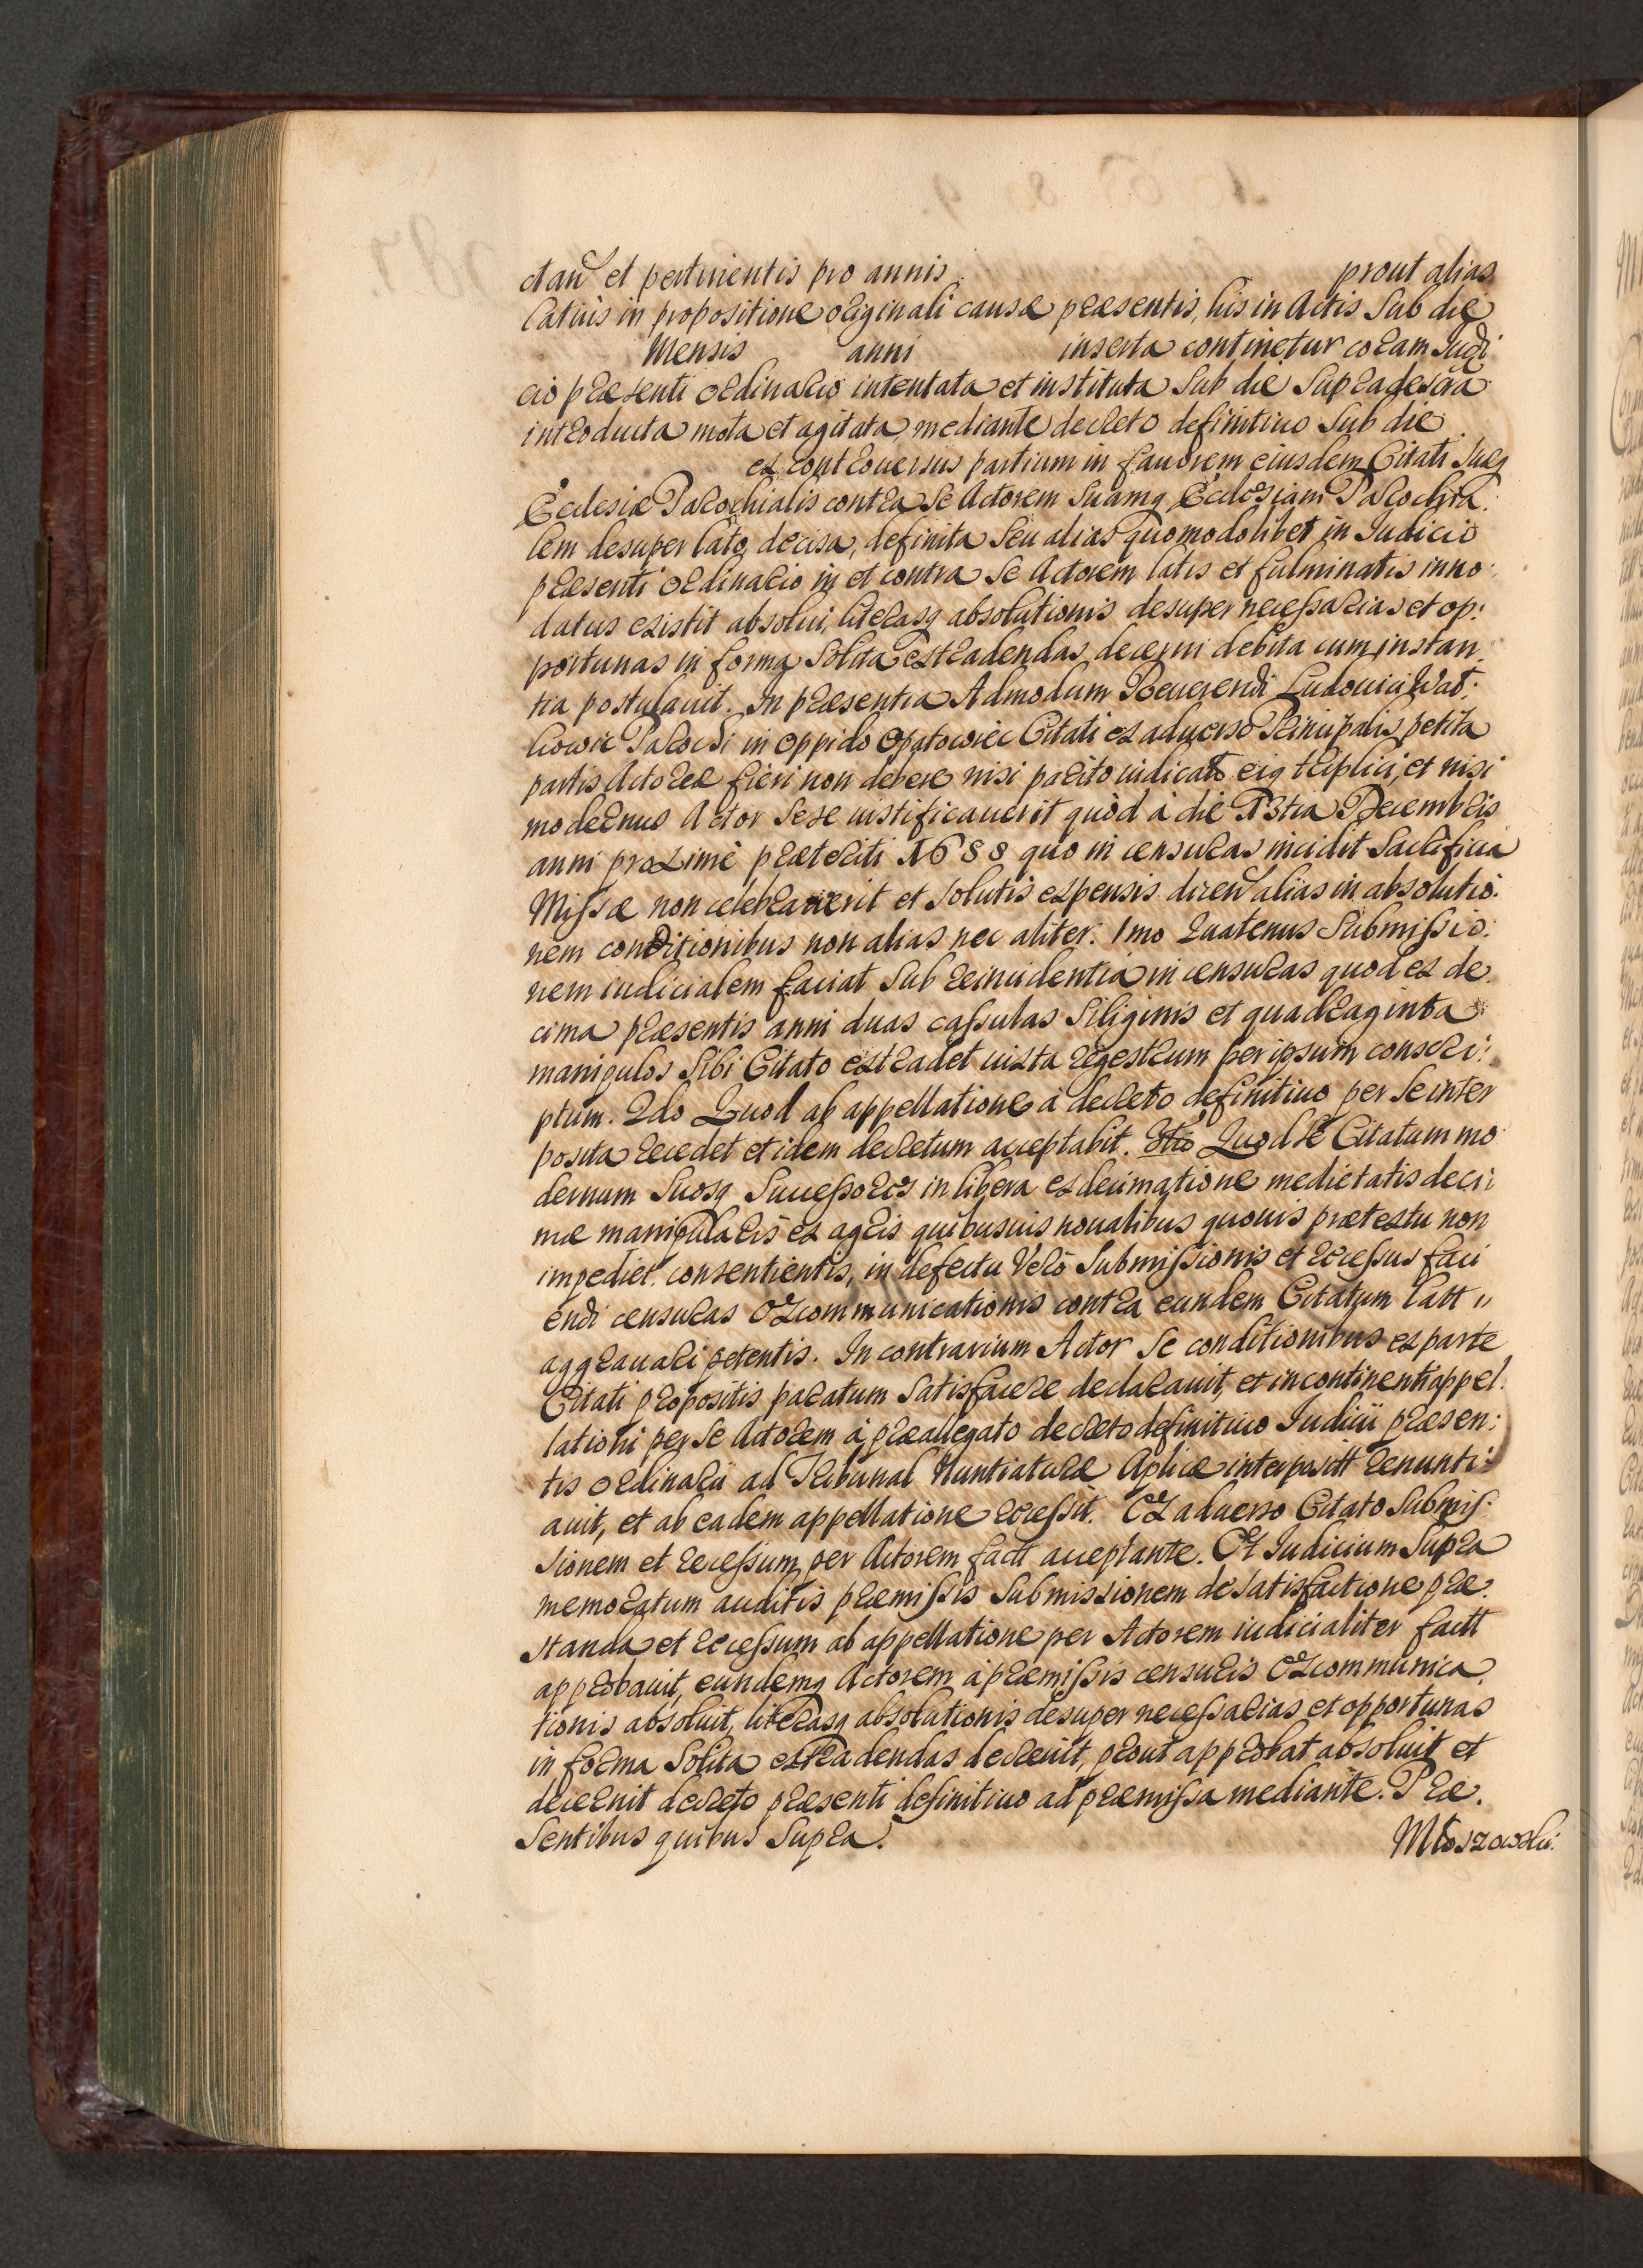 ctan̄ et pertinentis pro annis prout alias
latius in propositione originali causæ præsentis, his in Actis sub die
Mensis anni inserta continetur coram Judi
cio præsenti ordinario intentata et instituta sub die
introducta mota et agitata, mediante decreto definitiuo sub die
ex controuersiis partium in fauorem eiusdem Citati suæq
Ecclesiæ Parochialis contra se Actorem suamq Ecclesiam Parochia:
lem desuper lato, decisa, definita seu alias quomodolibet in Judicio
præsenti ordinario in et contra se Actorem latis et fulminatis inno:
datus existit absolui, literasq absolutionis desuper necessarias et op:
portunas in forma solita extradendas decerni debita cum instan
tia postulauit. In præsentia Admodum Reuerendi Ludouici
Parochi in oppido Opatowiec Citati ex aduerso Principalis petita
partis Actoreæ fieri non debere nisi parito iudicato eiq triplici, et nisi
modernus Actor sese iustificauerit quòd à die 13tia Decembris
anni proximè præteriti 1688 quo in censuras incidit sacrificia
Missæ non celebrauerit et solutis expensis alias in absolutio:
nem conditionibus non alias nec aliter. 1mo Quatenus submissio:
nem iudicialem faciat sub reincidentia in censuras quod ex de
cima præsentis anni duas cassulas siliginis et quadraginta
manipulos sibi Citato extradet iuxta regestrum per ipsum conscri:
ptum. 2do Quod ab appellatione à decreto definitiuo per se inter
posita recedet et idem decretum acceptabit. 3tio Quod se Citatum mo
dernum suosq successores in libera exdecimatione medietatis deci:
mæ manipularis ex agris quibusuis noualibus quouis prætextu non
impediet. consentientis, in defectu verò submissionis et recessus faci
endi censuras excommunicationis contra eundem Citatum latt
aggrauari petentis. In contrarium Actor se conditionibus ex parte
Citati propositis paratum satisfacere declarauit, et in continenti appel.
lationi per se Actorem à præallegato decreto definitiuo Judicii præsen:
tis ordinarii ad Tribunal Nuntiaturæ Aplicæ interpositt renunti:
auit, et ab eadem appellatione recessit. Ex aduerso Citato submis:
sionem et recessum per Actorem factt acceptante. Et Judicium supra
memoratum auditis præmissis submissionem de satisfactione præ:
standa et recessum ab appellatione per Actorem iudicialiter factt
approbauit, eundemq Actorem à præmissis censuris excommunica
tionis absoluit, literasq absolutionis desuper necessarias et opportunas
in forma solita extradendas decreuit, prout approbat absoluit et
decernit decreto præsenti definitiuo ad præmissa mediante. Præ.
sentibus quibus supra.
Młoszowski: